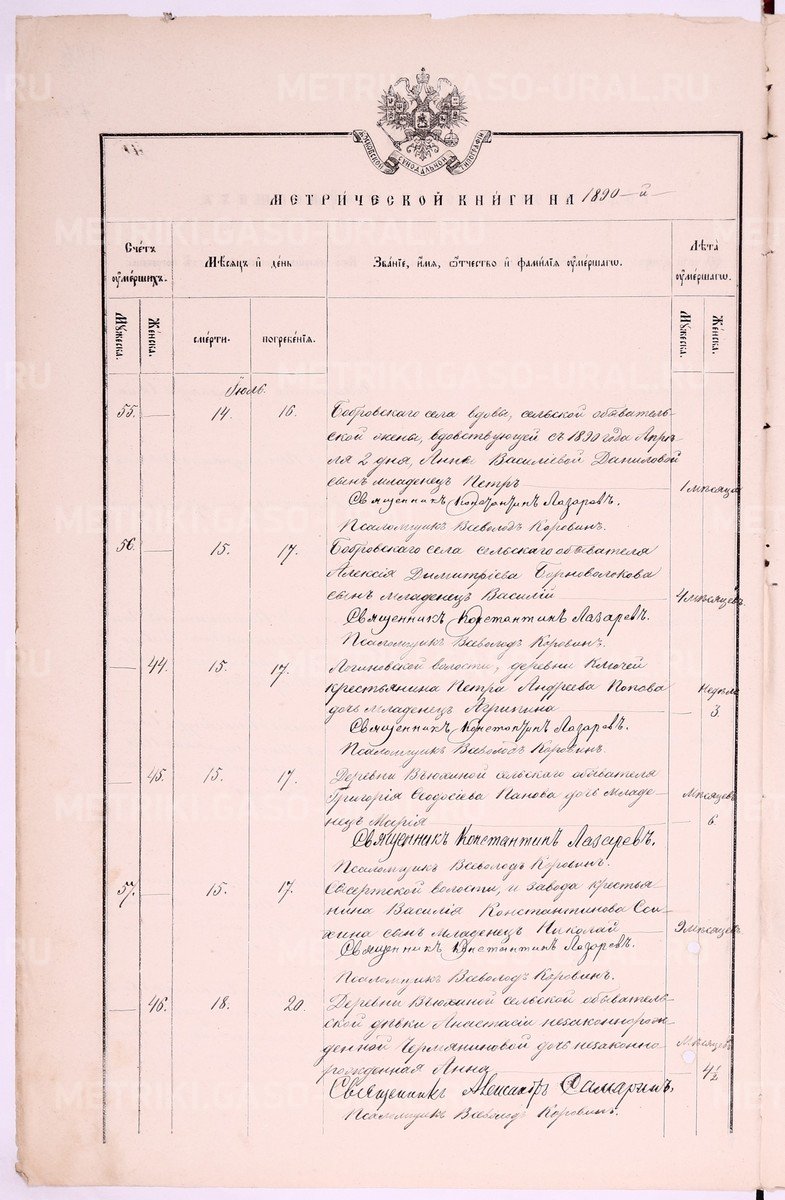 METRIKI.GASO-URAL.RU
МОСКОВСКОЙ СѴНОДАЛЬНОЙ ТИПОГРАФІИ
МЕТРИ́ЧЕСКОЙ КНИ́ГИ НА 1890-й
Сче́тъ ᲂу҆ме́ршихъ.
Мѣ́сяцъ и҆ де́нь
Зва́ніе, и҆́мя, ѻ҆́тчество и҆ фами́лія ᲂу҆ме́ршагѡ.
Лѣ́та ᲂу҆ме́ршагѡ.
Мꙋ́жеска. Же́нска. сме́рти. погребе́нія. Мꙋ́жеска. Же́нска.
Іюль.
55. 14. 16. Бобровскаго села вдовы, сельской обыватель-
ской жены, вдовствующей съ 1890 года Апрѣ-
ля 2 дня, Анны Василіевой Даниловой
сынъ младенецъ Петръ 1 мѣсяца
Священникъ Константинъ Лазаревъ.
Псаломщикъ Всеволодъ Коровинъ.
56. 15. 17. Бобровскаго села сельскаго обывателя
Алексія Димитріева Черноволокова
сынъ младенецъ Василій 4 мѣсяцевъ
Священникъ Константинъ Лазаревъ.
Псаломщикъ Всеволодъ Коровинъ.
44. 15. 17. Логиновской волости, деревни Ключей
крестьянина Петра Андреева Попова Недѣли
дочь младенецъ Агрипина 3.
Священникъ Константинъ Лазаревъ.
Псаломщикъ Всеволодъ Коровинъ.
45. 15. 17. Деревни Вьюхиной сельскаго обывателя
Григорія Ѳеодосіева Панова дочь младе- Мѣсяцевъ
нецъ Марія 6.
Священникъ Константинъ Лазаревъ.
Псаломщикъ Всеволодъ Коровинъ.
57. 15. 17. Сысертской волости, и завода крестья-
нина Василія Константинова
сынъ младенецъ Николай 9 мѣсяцевъ
Священникъ Константинъ Лазаревъ.
Псаломщикъ Всеволодъ Коровинъ.
46. 18. 20. Деревни Вьюхиной сельской обыватель-
ской дѣвки Анастасіи незаконнорож-
денной Чермяниновой дочь незаконно Мѣсяцевъ
рожденная Анна 4½
Священникъ Александръ Самаринъ.
Псаломщикъ Всеволодъ Коровинъ.